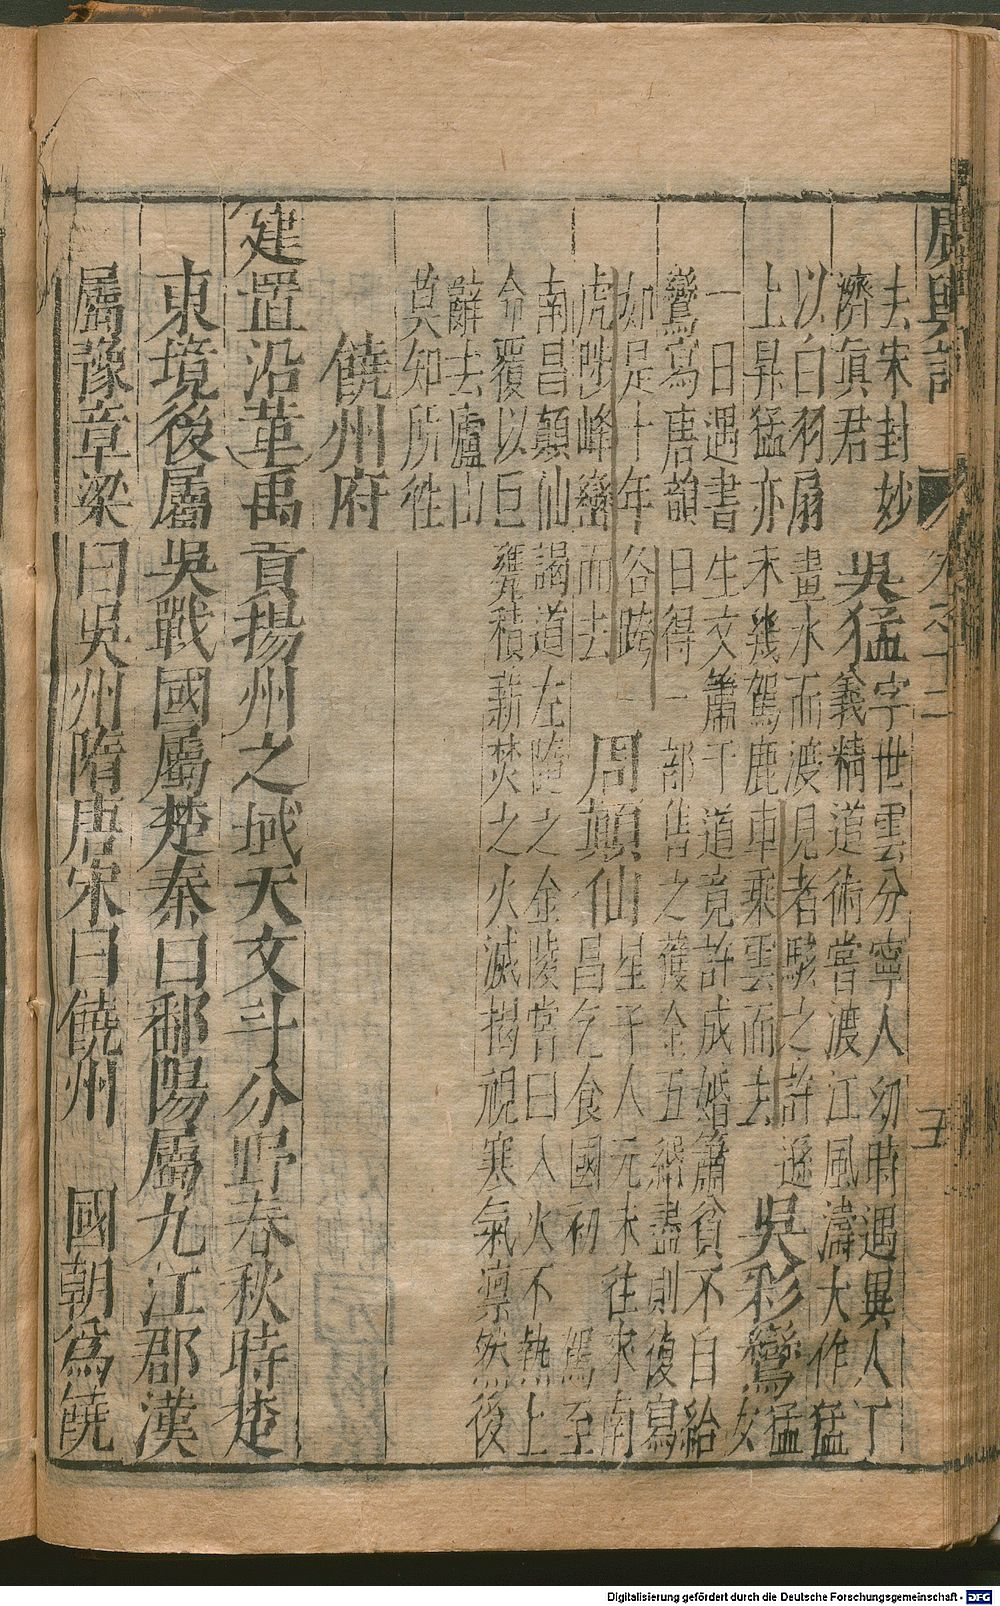 廣輿記 卷之十二 五
去宋封妙
濟真君
吳猛
字世雲分寧人幼時遇異人丁
義精道術嘗渡江風濤大作猛
以白羽扇畫水而渡見者駭之許遜
上昇猛亦未幾駕鹿車乘雲而去
吳彩鸞
猛
女
一日遇書生文簫于道竟許成婚簫貧不自給
鸞寫唐韻日得一部售之獲金五緡盡則復寫
如是十年谷跨一
虎陟峰巒而去
周顛仙
星子人元末往來南
昌乞食國初 駕至
南昌顛仙謁道左隨之金陵嘗曰入火不熱上
命覆以巨甕積薪焚之火滅揭視寒氣凛然後
辭去廬山
莫知所徃
饒州府
建置沿革禹貢揚州之域天文斗分野春秋時楚
東境後屬吳戰國屬楚秦曰鄱陽屬九江郡漢
屬豫章梁曰吳州隋唐宋曰饒州 國朝為饒
Digitalisierung gefördert durch die Deutsche Forschungsgemeinschaft - DFG